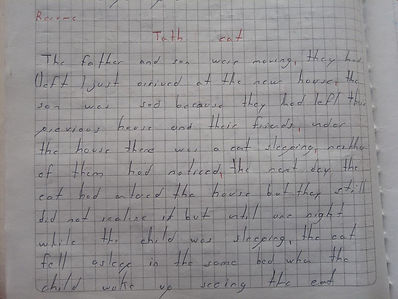 Resume
Tath cat
The father and son were moving, they had
left just arrived at the new house, the
son was sad because they had left their
previous house and their friends, under
the house there was a cat sleeping, neither
of them had noticed, the next day the
cat had entered the house but they still
did not realise it but until one night
while the child was sleeping, the cat
fell asleep in the same bed when the
child woke up seeing the cat